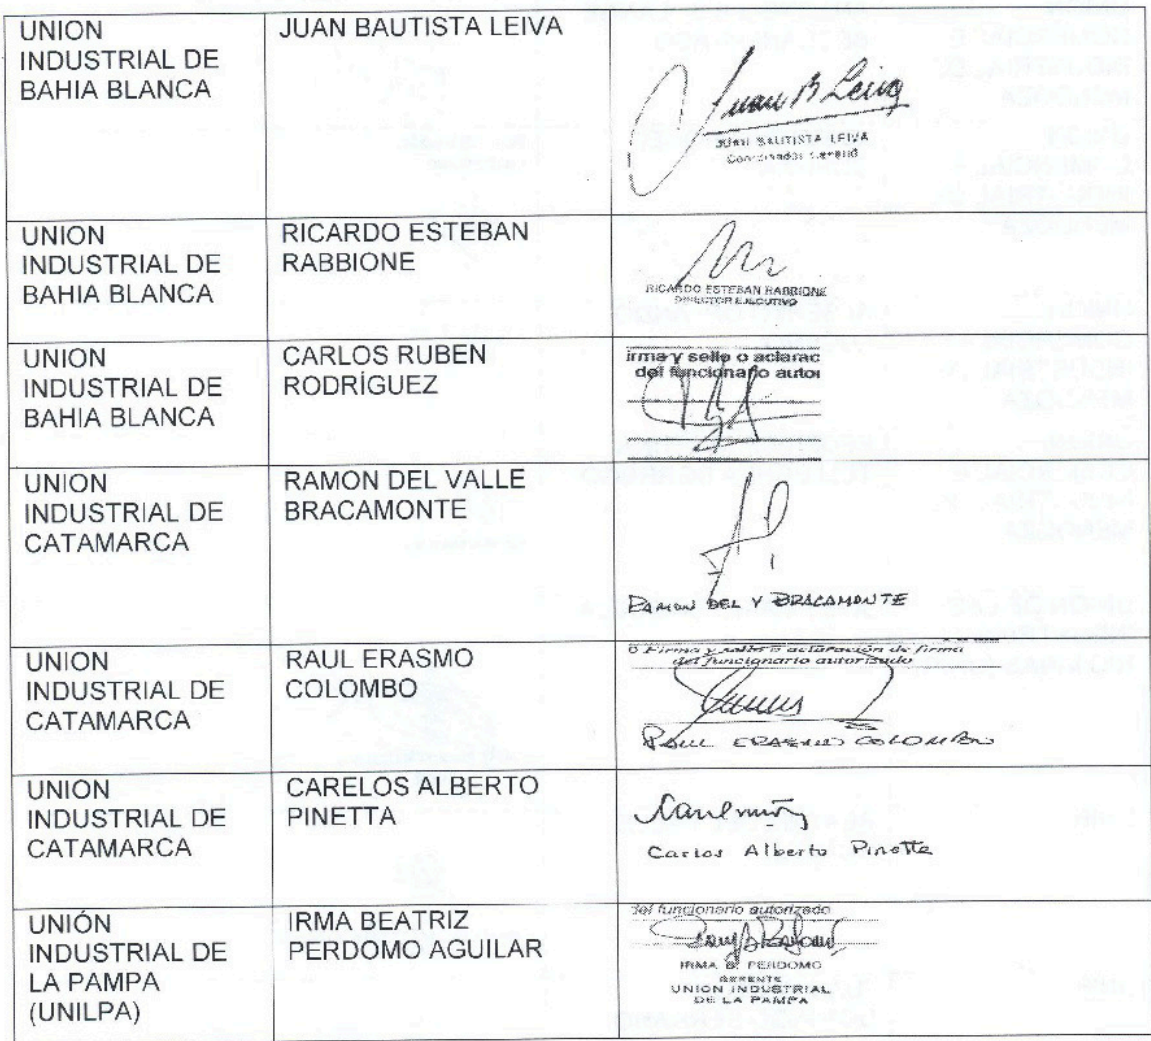 UNION
INDUSTRIAL DE
BAHIA BLANCA
JUAN BAUTISTA LEIVA
Juan B Leiva
JUAN BAUTISTA LEIVA
Coordinador General
UNION
INDUSTRIAL DE
BAHIA BLANCA
RICARDO ESTEBAN
RABBIONE
RICARDO ESTEBAN RABBIONE
DIRECTOR EJECUTIVO
UNION
INDUSTRIAL DE
BAHIA BLANCA
CARLOS RUBEN
RODRÍGUEZ
irma y sello o aclarac
del funcionario autor
UNION
INDUSTRIAL DE
CATAMARCA
RAMON DEL VALLE
BRACAMONTE
RAMON DEL V BRACAMONTE
UNION
INDUSTRIAL DE
CATAMARCA
RAUL ERASMO
COLOMBO
Firma y sello o aclaración de firma
del funcionario autorizado
RAUL ERASMO COLOMBO
UNION
INDUSTRIAL DE
CATAMARCA
CARELOS ALBERTO
PINETTA
Carlos Alberto Pinetta
UNIÓN
INDUSTRIAL DE
LA PAMPA
(UNILPA)
IRMA BEATRIZ
PERDOMO AGUILAR
del funcionario autorizado
IRMA B. PERDOMO
GERENTE
UNION INDUSTRIAL
DE LA PAMPA